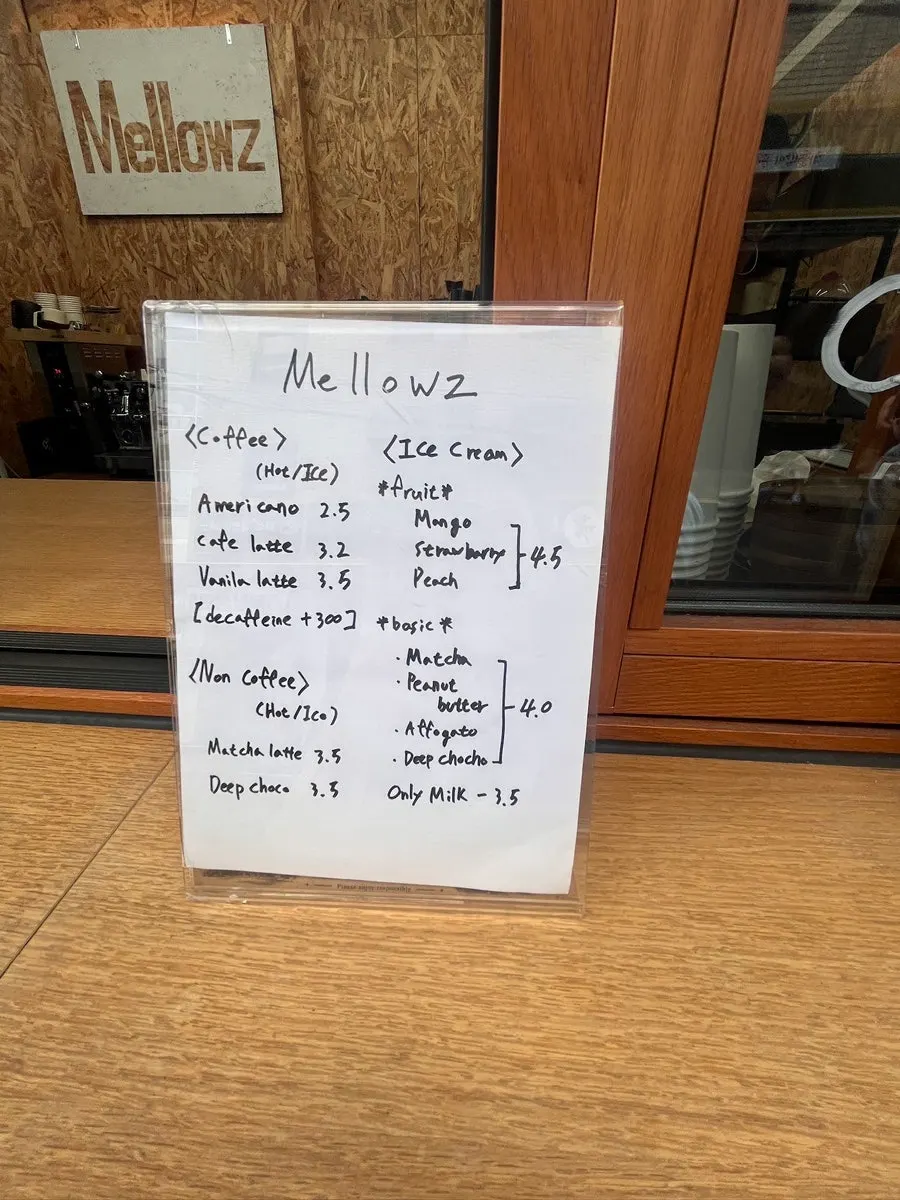 Mellowz
Mellowz
<Coffee>
(Hot/Ice)
Americano 2.5
cafe latte 3.2
Vanila latte 3.5
[decaffeine +300]
<Non coffee>
(Hot/Ice)
Matcha latte 3.5
Deep choco 3.5
<Ice cream>
*fruit*
Mango
Strawbarry
Peach
4.5
*basic*
· Matcha
· Peanut
butter
· Affogato
· Deep chocho
4.0
Only Milk - 3.5
Please enjoy responsibly